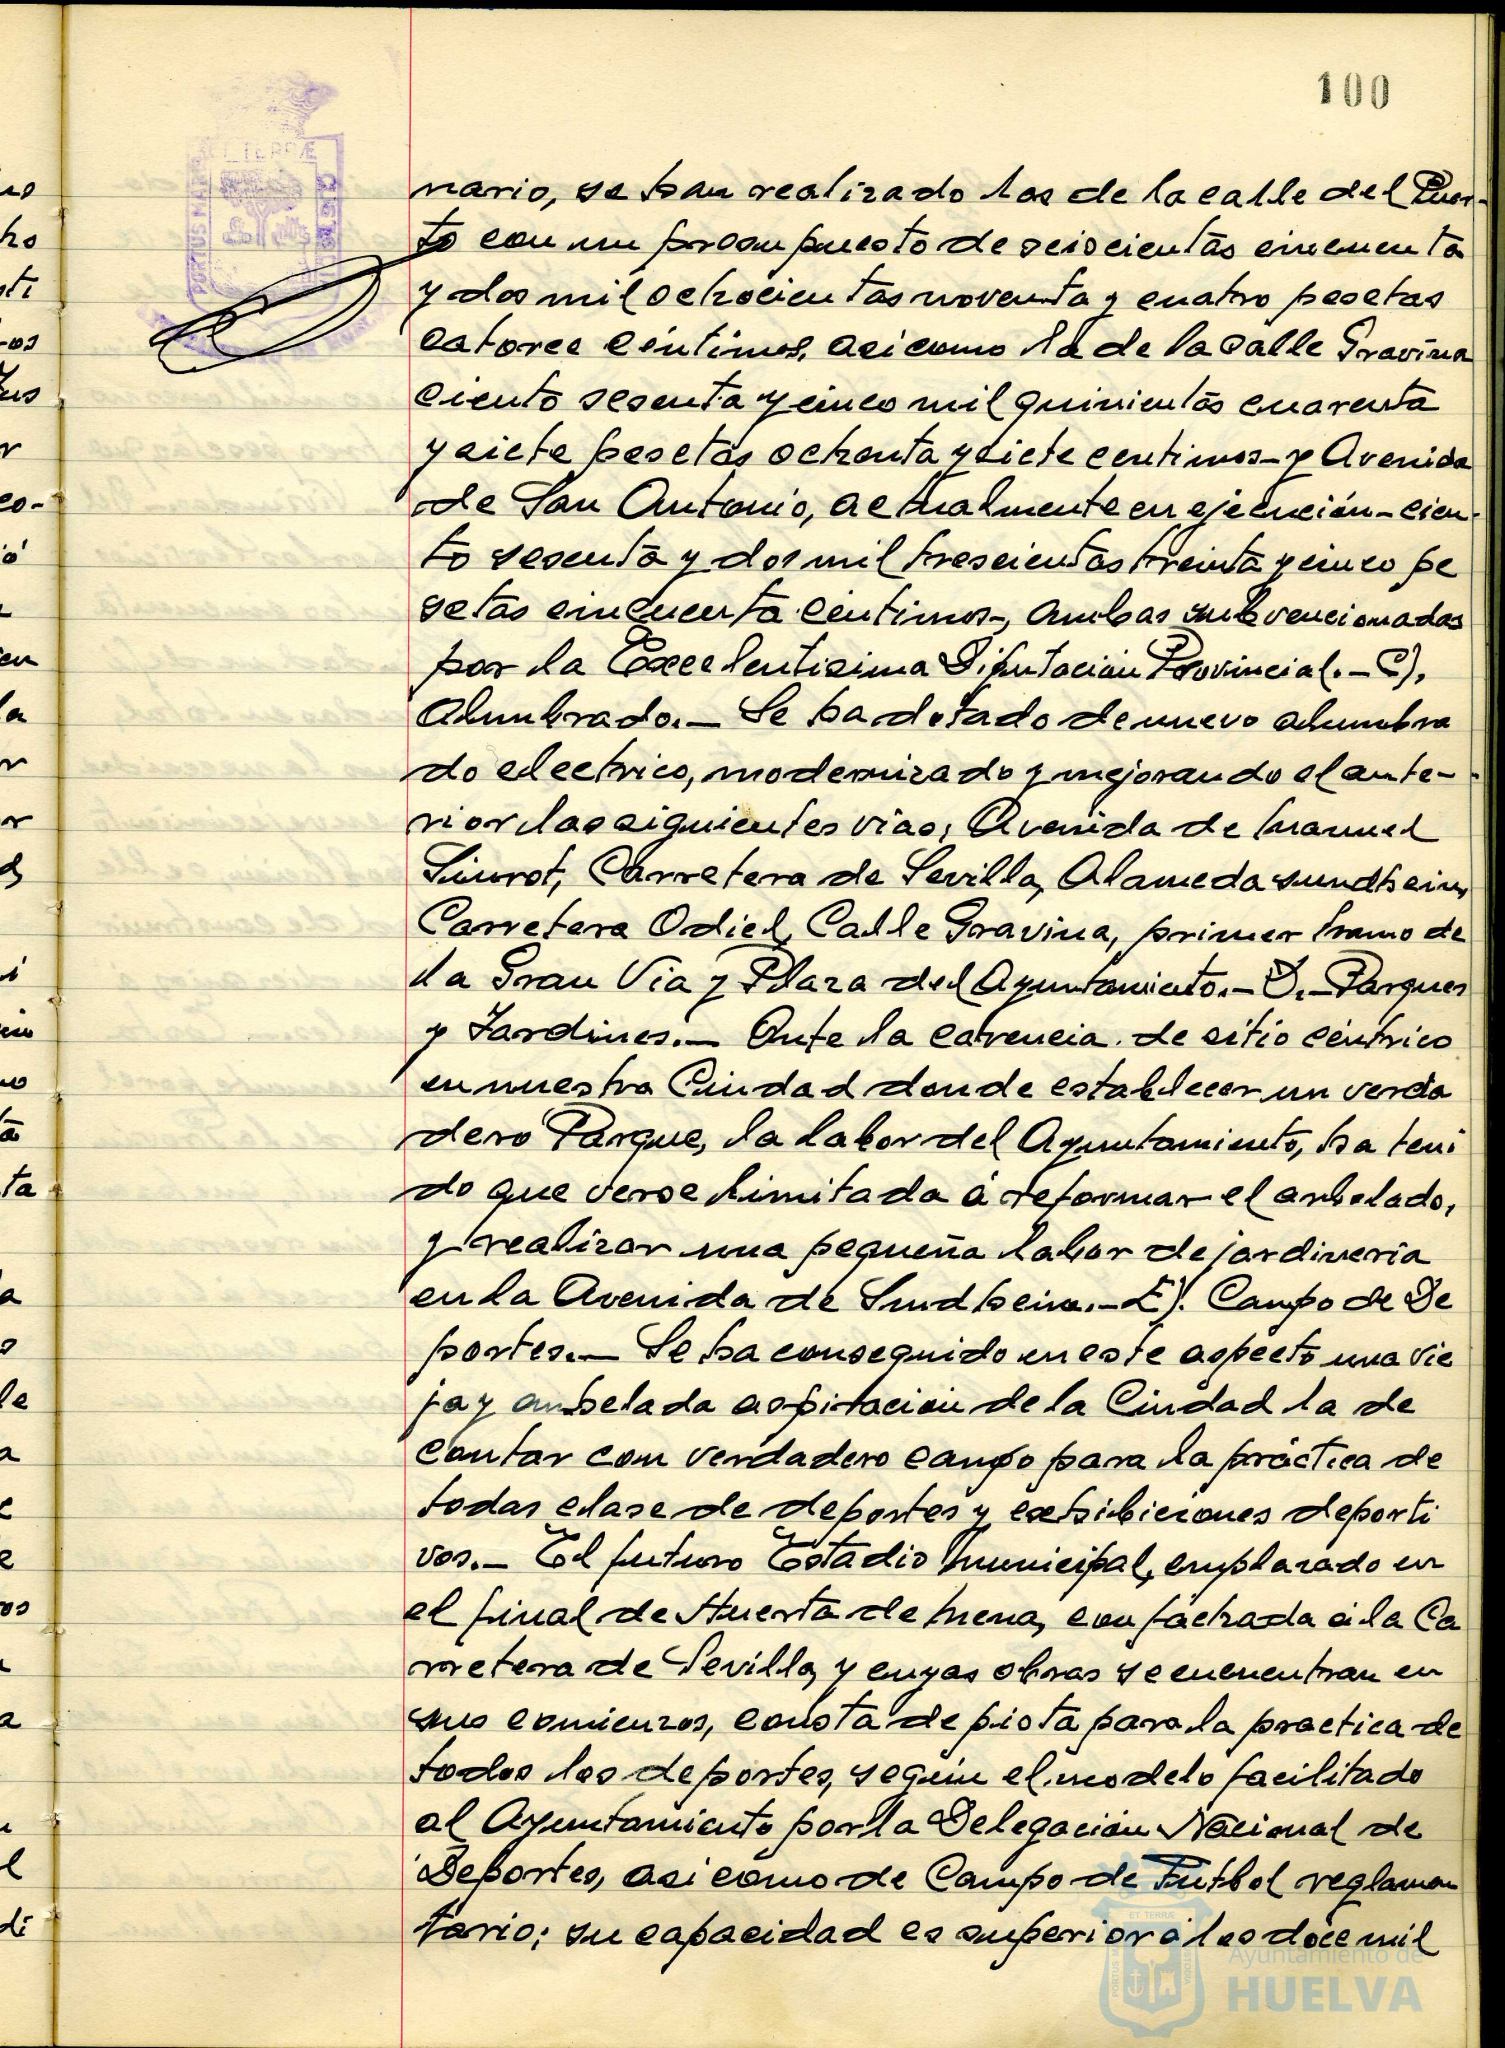 100
nario, se han realizado las de la calle del Puer-
to con un presupuesto de seiscientas cincuenta
y dos mil ochocientas noventa y cuatro pesetas
catorce céntimos, asi como la de la calle Gravina
ciento sesenta y cinco mil quinientas cuarenta
y siete pesetas ochenta y siete centimos- y Avenida
de San Antonio, actualmente en ejecución - cien-
to sesenta y dos mil trescientas treinta y cinco pe
setas cincuenta céntimos-, ambas subvencionadas
por la Excelentisima Diputación Provincial.- C).
Alumbrado.- Se ha dotado de nuevo alumbra
do electrico, modernizado y mejorando el ante-
rior las siguientes vias, Avenida de Manuel
Siurot, Carretera de Sevilla, Alameda sundheim,
Carretera Odiel, Calle Gravina, primer tramo de
la Gran Via y Plaza del Ayuntamiento.- D.- Parques
y Jardines.- Ante la carencia de sitio céntrico
en nuestra Ciudad donde establecer un verda
dero Parque, la labor del Ayuntamiento, ha teni
do que verse limitada á reformar el arbolado,
y realizar una pequeña labor de jardineria
en la Avenida de Sundheim.- E). Campo de De
portes.- Se ha conseguido en este aspecto una vie
ja y anhelada aspiración de la Ciudad la de
contar con verdadero campo para la práctica de
todas clase de deportes y exhibiciones deporti
vos.- El futuro Estadio Municipal, emplazado en
el final de Huerta de Mena, con fachada á la Ca
rretera de Sevilla, y cuyas obras se encuentran en
sus comienzos, consta de pista para la practica de
todos los deportes, según el modelo facilitado
al Ayuntamiento por la Delegación Nacional de
Deportes, asi como de Campo de Futbol reglamen
tario; su capacidad es superior á los doce mil
PORTUS MARIS
ET TERRÆ
Ayuntamiento de
HUELVA